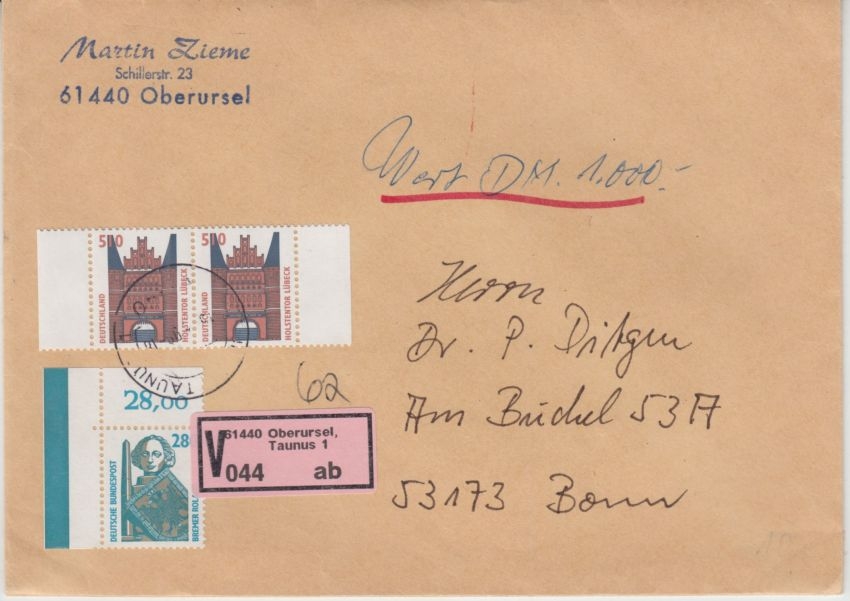 Martin Zieme
Schillerstr. 23
61440 Oberursel
Wert DM. 1.000.-
500
500
DEUTSCHLAND
HOLSTENTOR LÜBECK
DEUTSCHLAND
HOLSTENTOR LÜBECK
TAUNU
Herrn
Dr. P. Ditgen
Am Büchel 53A
53173 Bonn
62
28,00
280
DEUTSCHE BUNDESPOST
BREMER ROL
V
61440 Oberursel,
Taunus 1
044 ab